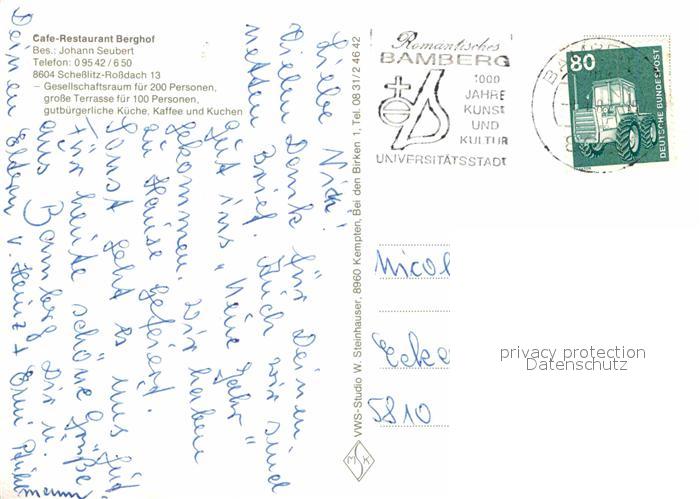 Cafe-Restaurant Berghof
Bes.: Johann Seubert
Telefon: 0 95 42 / 6 50
8604 Scheßlitz-Roßdach 13
– Gesellschaftsraum für 200 Personen,
große Terrasse für 100 Personen,
gutbürgerliche Küche, Kaffee und Kuchen
Liebe Nicol!
Vielen Dank für Deinen
netten Brief. Auch wir sind
gut ins "Neue Jahr"
gekommen. Wir haben
zu Hause gefeiert.
Sonst geht es uns gut
Für heute schöne Grüße
aus Bamberg Dir u.
Deinen Eltern v. Heinz + Erni
VWS-Studio W. Steinhauser, 8960 Kempten, Bei den Birken 1, Tel. 08 31 / 2 46 42
MSK
Romantisches
BAMBERG
1000
JAHRE
KUNST
UND
KULTUR
UNIVERSITÄTSSTADT
80
DEUTSCHE BUNDESPOST
Nicol
Ecke
5810
privacy protection
Datenschutz